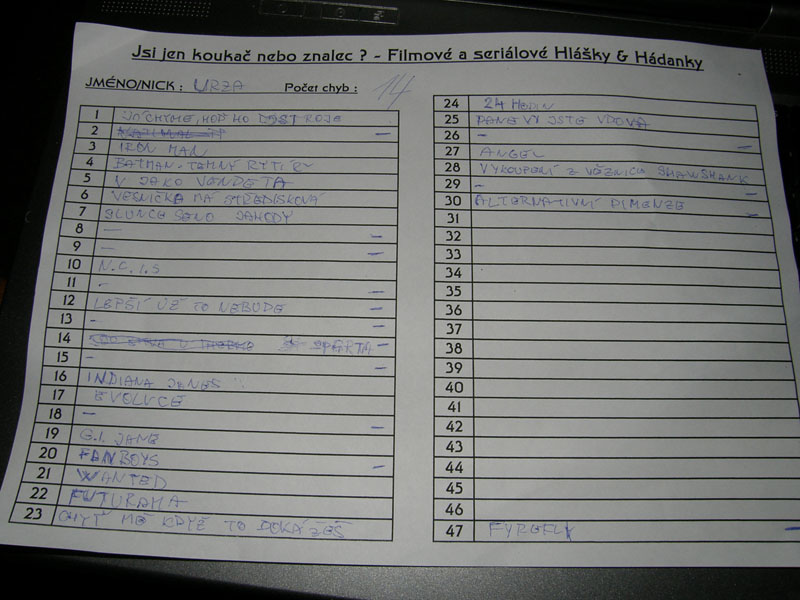 Jsi jen koukač nebo znalec ? - Filmové a seriálové Hlášky & Hádanky
JMÉNO/NICK : URZA Počet chyb : 14
1 JÁCHYME, HOĎ HO DO STROJE
2 —
3 IRON MAN
4 BATMAN - TEMNÝ RYTÍŘ
5 V JAKO VENDETA
6 VESNIČKO MÁ STŘEDISKOVÁ
7 SLUNCE SENO JAHODY
8 — –
9 – –
10 N.C.I.S
11 - –
12 LEPŠÍ UŽ TO NEBUDE –
13 – –
14 SPARTA –
15 – –
16 INDIANA JONES
17 EVOLUCE
18 – –
19 G.I. JANE
20 FANBOYS –
21 WANTED
22 FUTURAMA
23 CHYŤ MĚ KDYŽ TO DOKÁŽEŠ
24 24 HODIN
25 PANE VY JSTE VDOVA
26 – –
27 ANGEL
28 VYKOUPENÍ Z VĚZNICE SHAWSHANK
29 – –
30 ALTERNATIVNÍ DIMENZE –
31
32
33
34
35
36
37
38
39
40
41
42
43
44
45
46
47 FYREFLY –